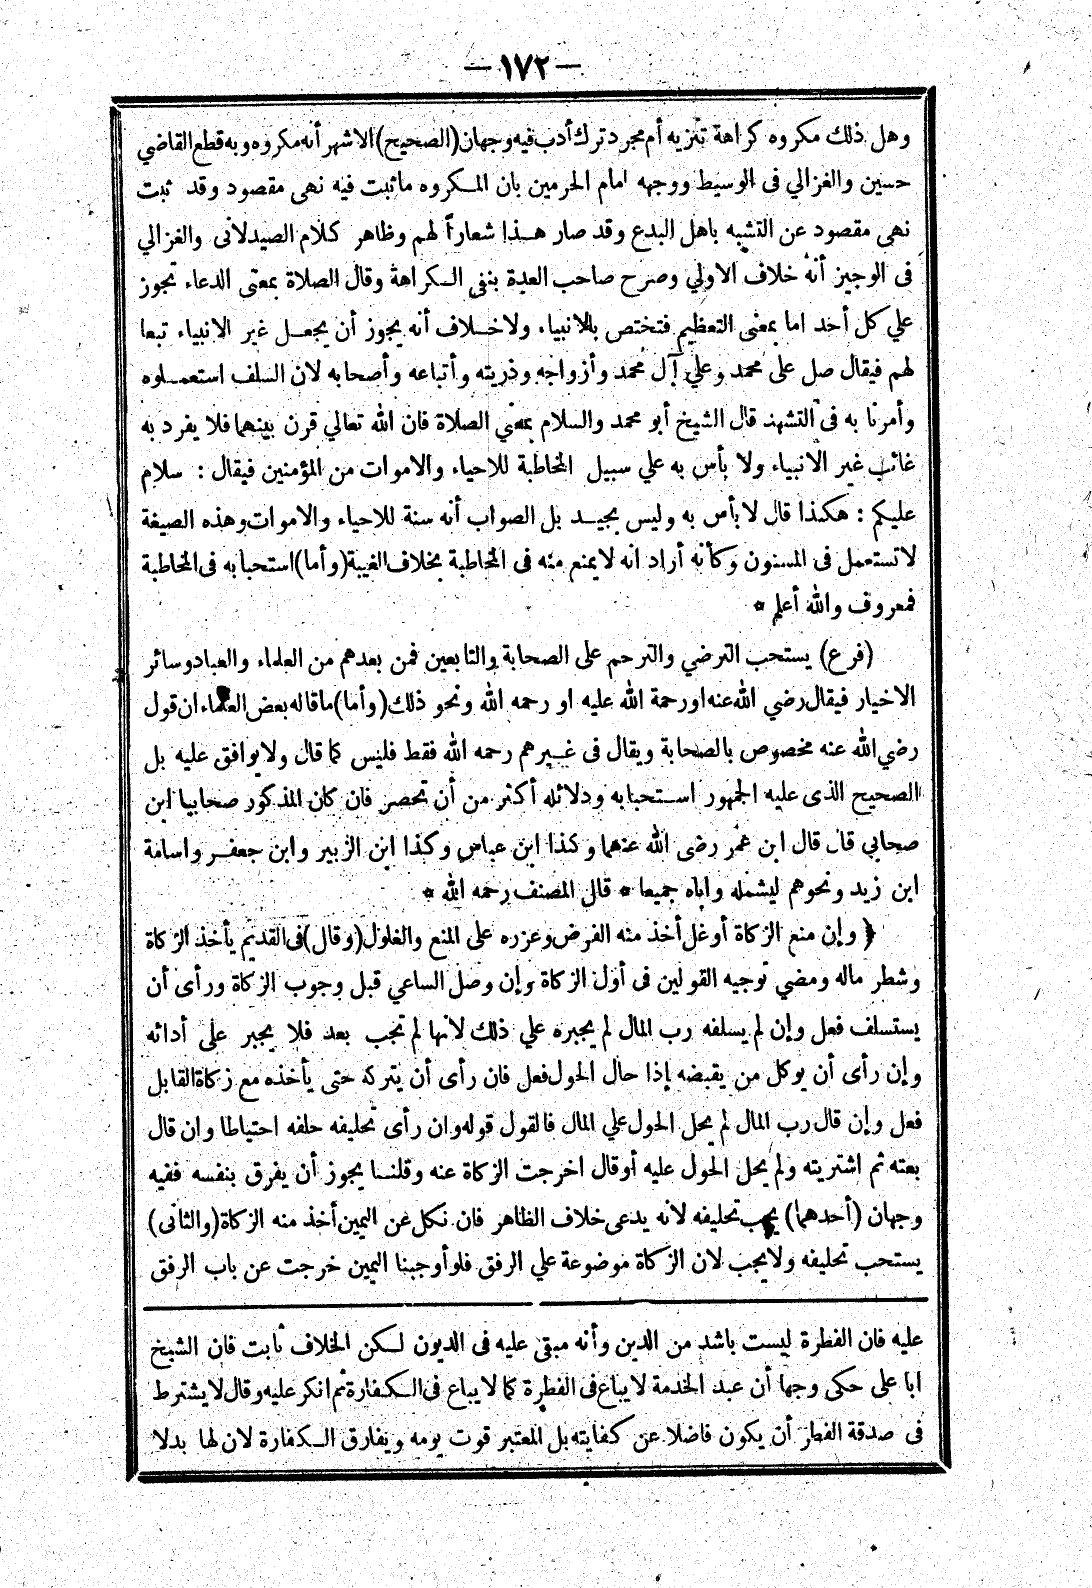 — ١٧٢ —
وهل ذلك مكروه كراهة تنزيه أم مجرد ترك أدب فيه وجهان (الصحيح) الاشهر أنه مكروه وبه قطع القاضي
حسين والغزالي فى الوسيط ووجهه امام الحرمين بان المكروه ما ثبت فيه نهى مقصود وقد ثبت
نهى مقصود عن التشبه باهل البدع وقد صار هذا شعاراً لهم وظاهر كلام الصيدلانى والغزالي
فى الوجيز أنه خلاف الاولي وصرح صاحب العدة بنفى الكراهة وقال الصلاة بمعنى الدعاء تجوز
علي كل أحد اما بمعنى التعظيم فتختص بالانبياء ولا خلاف أنه يجوز أن يجعل غير الانبياء تبعا
لهم فيقال صل على محمد وعلي آل محمد وأزواجه وذريته وأتباعه وأصحابه لان السلف استعملوه
وأمرنا به فى التشهد قال الشيخ أبو محمد والسلام بمعني الصلاة فان الله تعالي قرن بينهما فلا يفرد به
غائب غير الانبياء ولا بأس به علي سبيل المخاطبة للاحياء والاموات من المؤمنين فيقال : سلام
عليكم : هكذا قال لا بأس به وليس بجيد بل الصواب أنه سنة للاحياء والاموات وهذه الصيغة
لا تستعمل فى المسنون وكأنه أراد انه لا يمنع منه فى المخاطبة بخلاف الغيبة (وأما) استحبابه فى المخاطبة
فمعروف والله أعلم *
(فرع) يستحب الترضي والترحم على الصحابة والتابعين فمن بعدهم من العلماء والعباد وسائر
الاخيار فيقال رضي الله عنه او رحمة الله عليه او رحمه الله ونحو ذلك (وأما) ما قاله بعض العلماء ان قول
رضي الله عنه مخصوص بالصحابة ويقال فى غيرهم رحمه الله فقط فليس كما قال ولا يوافق عليه بل
الصحيح الذى عليه الجمهور استحبابه ودلائله أكثر من أن تحصر فان كان المذكور صحابيا ابن
صحابي قال قال ابن عمر رضى الله عنهما وكذا ابن عباس وكذا ابن الزبير وابن جعفر واسامة
ابن زيد ونحوهم ليشمله واباه جميعا * قال المصنف رحمه الله *
﴿ وإن منع الزكاة أو غل أخذ منه الفرض وعزره على المنع والغلول (وقال) فى القديم يأخذ الزكاة
وشطر ماله ومضي توجيه القولين فى أول الزكاة وإن وصل الساعي قبل وجوب الزكاة ورأى أن
يستسلف فعل وإن لم يسلفه رب المال لم يجبره علي ذلك لانها لم تجب بعد فلا يجبر على أدائه
وإن رأى أن يوكل من يقبضه إذا حال الحول فعل فان رأى أن يتركه حتى يأخذه مع زكاة القابل
فعل وإن قال رب المال لم يحل الحول علي المال فالقول قوله وان رأى تحليفه حلفه احتياطا وان قال
بعته ثم اشتريته ولم يحل الحول عليه أو قال اخرجت الزكاة عنه وقلنا يجوز أن يفرق بنفسه ففيه
وجهان (أحدهما) يجب تحليفه لانه يدعى خلاف الظاهر فان نكل عن اليمين أخذ منه الزكاة (والثانى)
يستحب تحليفه ولا يجب لان الزكاة موضوعة علي الرفق فلو أوجبنا اليمين خرجت عن باب الرفق
عليه فان الفطرة ليست باشد من الدين وأنه مبقى عليه فى الديون لكن الخلاف ثابت فان الشيخ
ابا على حكى وجها أن عبد الخدمة لا يباع فى الفطرة كما لا يباع فى الكفارة ثم انكر عليه وقال لا يشترط
فى صدقة الفطر أن يكون فاضلا عن كفايته بل المعتبر قوت يومه ويفارق الكفارة لان لها بدلا